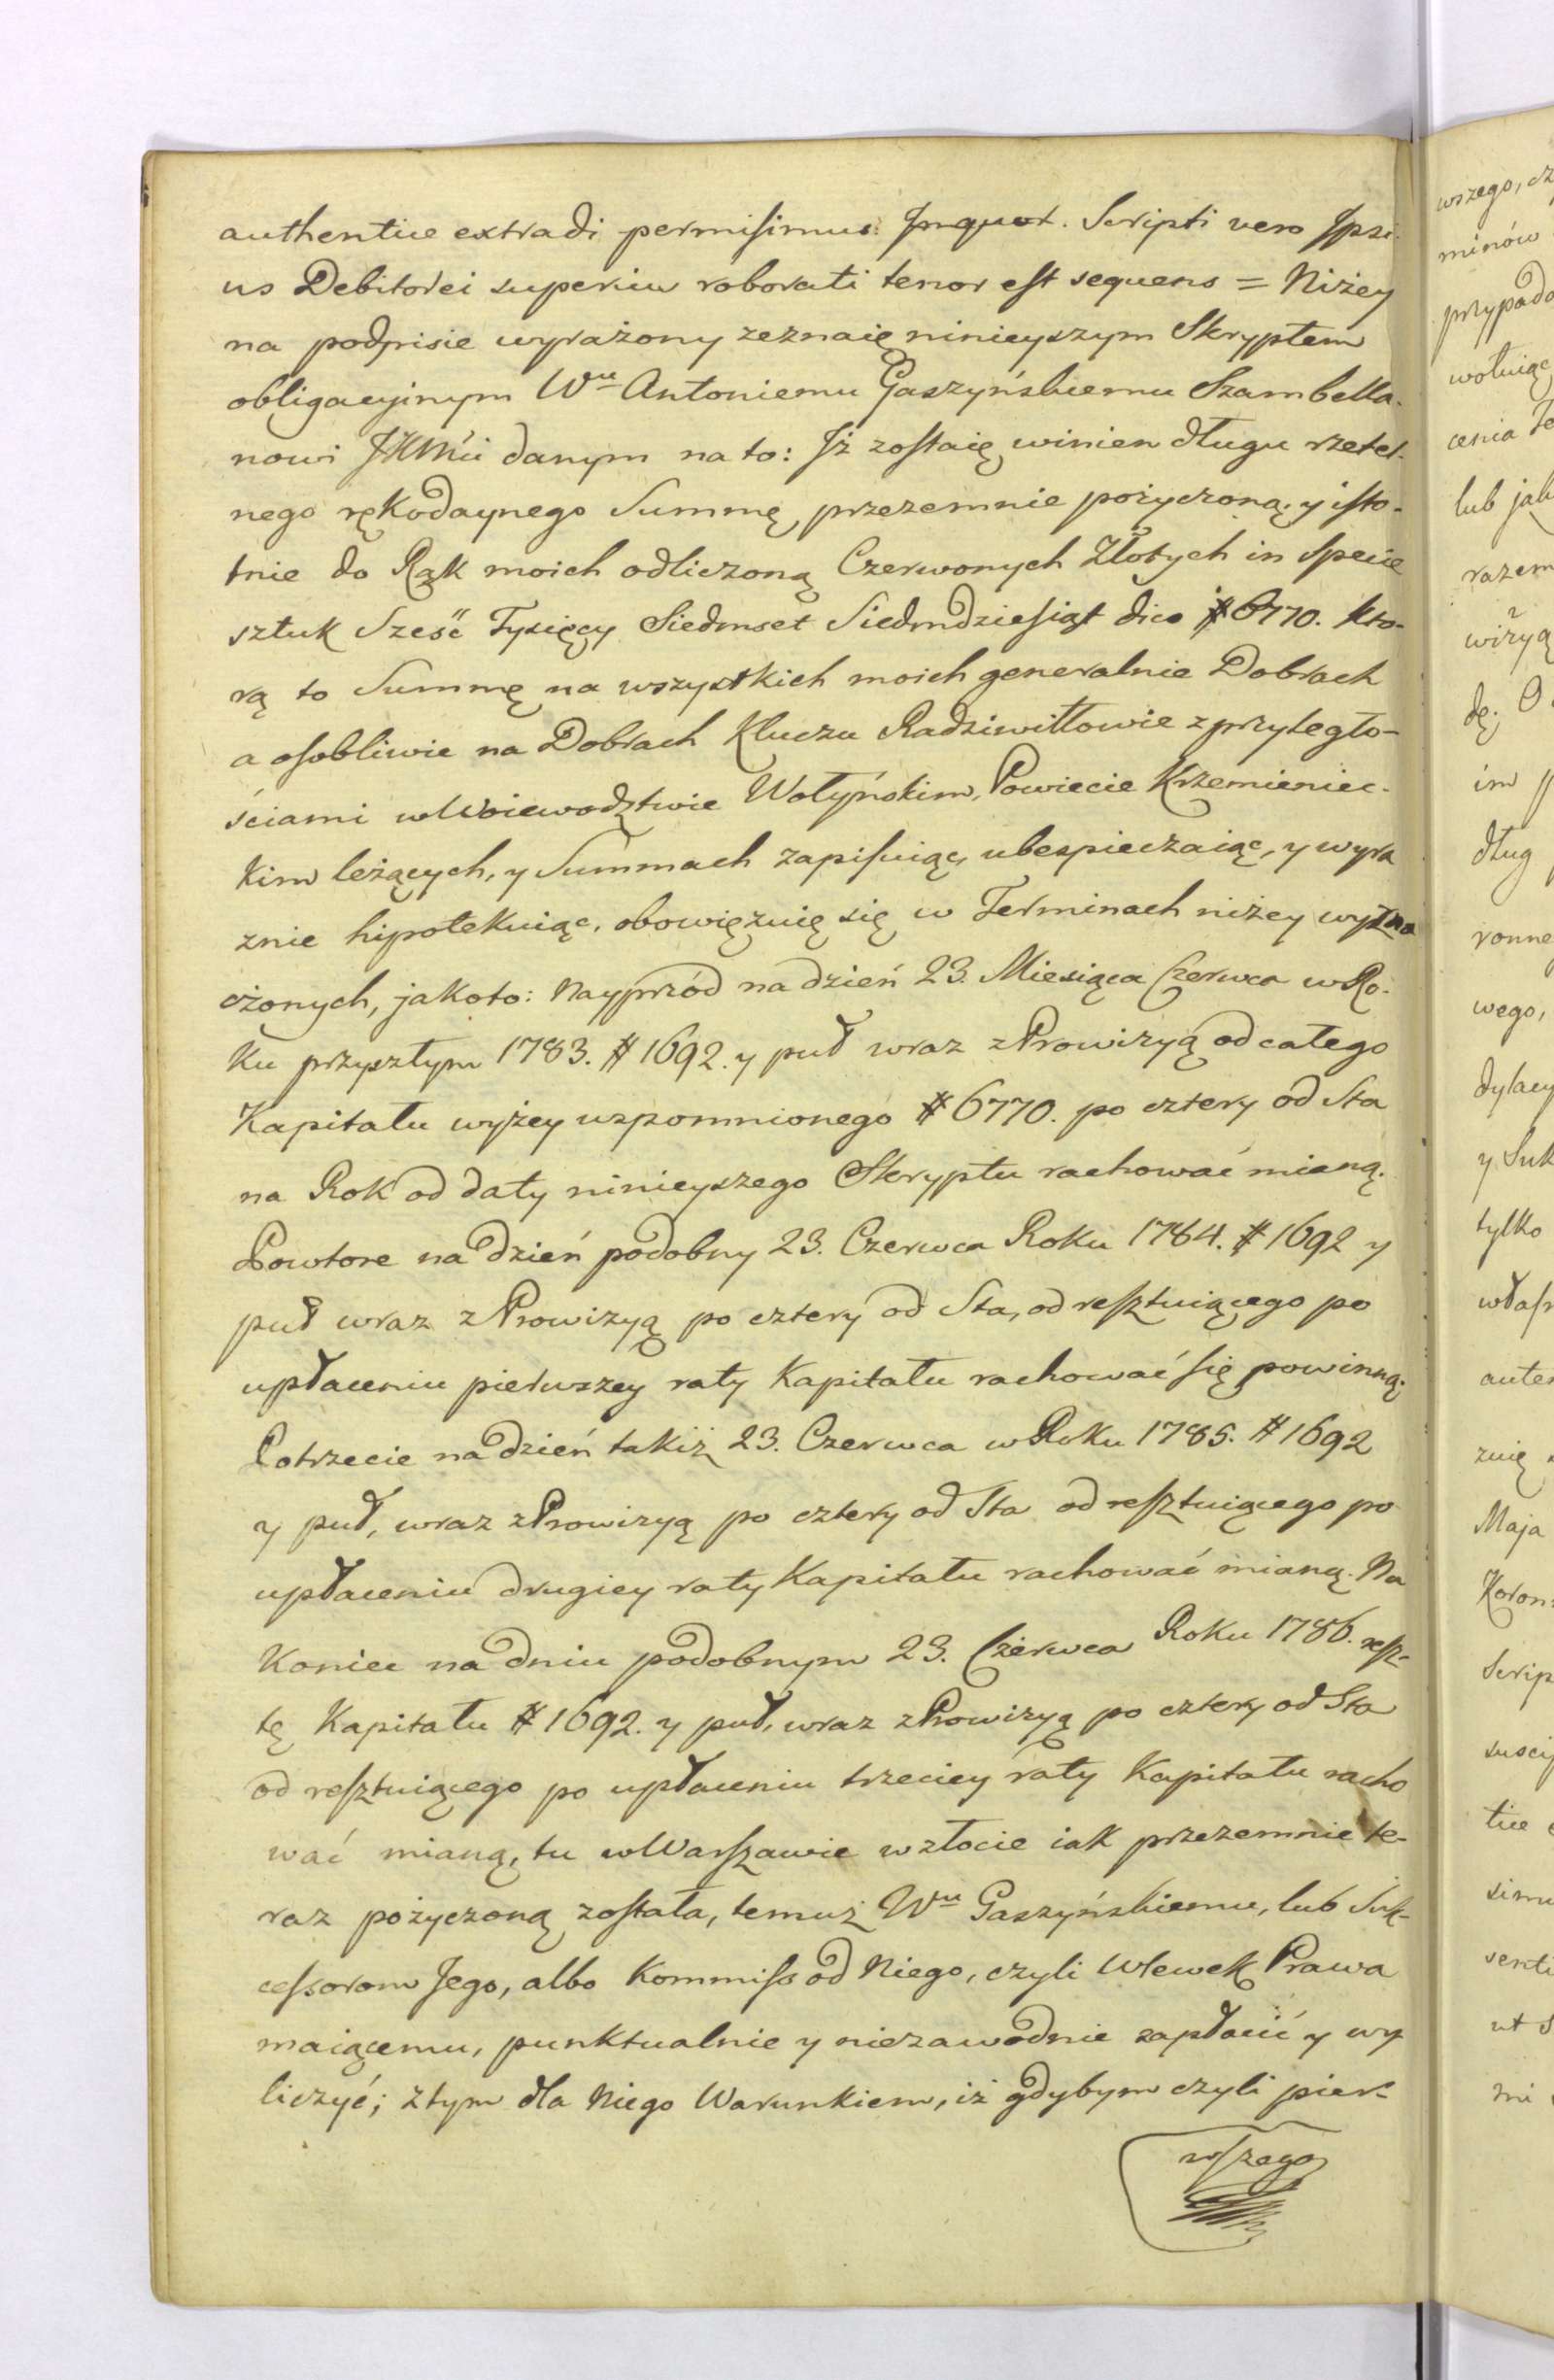 authentice extradi permisimus. Inquot. Scripti vero Ipsi-
us Debitorei superius roborati tenor est sequens = Niżey
na podpisie wyrażony zeznaię ninieyszym Skryptem
obligacyinym Wu Antoniemu Gaszyńskiemu Szambella-
nowi JKMći danym na to: Iż zostaię winien długu rzetel-
nego rękodaynego Summę przezemnie pożyczoną, y isto-
tnie do Rąk moich odliczoną Czerwonych Złotych in Specie
sztuk Sześć Tysięcy Siedmset Siedmdziesiąt dico # 6770. kto-
rą to Summę na wszystkich moich generalnie Dobrach
a osobliwie na Dobrach Kluczu Radziwiłłowie z przyległo-
ściami w Woiewodztwie Wołyńskim, Powiecie Krzemieniec-
kim leżących, y Summach zapisuiąc, ubespieczaiąc, y wyra
znie hipotekuiąc, obowięzuię się w Terminach niżey wyzna
czonych, jakoto: Nayprzód na dzień 23. Miesiąca Czerwca w Ro-
ku przyszłym 1783. # 1692. y puł wraz z Prowizyą od całego
Kapitału wyżey wspomnionego # 6770. po cztery od Sta
na Rok od daty ninieyszego Skryptu rachować mianą.
Powtore na dzień podobny 23. Czerwca Roku 1784. # 1692 y
puł wraz z Prowizyą po cztery od Sta, od resztuiącego po
upłaceniu pierwszey raty Kapitału rachować się powinną.
Potrzecie na dzień takiż 23. Czerwca w Roku 1785. # 1692
y puł, wraz z Prowizyą po cztery od Sta od resztuiącego po
upłaceniu drugiey raty Kapitału rachować mianą. Na
koniec na dniu podobnym 23. Czerwca Roku 1786. resz-
tę Kapitału # 1692. y puł, wraz z Prowizyą po cztery od Sta
od resztuiącego po upłaceniu trzeciey raty Kapitału racho
wać mianą, tu w Warszawie w złocie iak przezemnie te-
raz pożyczoną została, temuż Wu Gaszyńskiemu, lub Suk-
cessorom Jego, albo Kommiss od Niego, czyli Wlewek Prawa
maiącemu, punktualnie y niezawodnie zapłacić y wy
liczyć; z tym dla Niego Warunkiem, iż gdybym czyli pier-
wszego
wszego, cz
minów
przypada
wołuiąc
cenia Te
lub jak
razem
wizyą
dę; O
im p
dług
ronne
wego,
dylacy
y Suk
tylko
własn
auten
zuię
Maja
Koron
Scrip
suscip
tice
simu
senti
ut s
mi